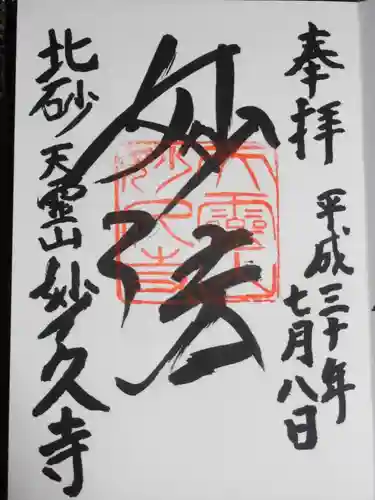 奉拝
平成三十年
七月八日
妙法
天霊山
妙久寺
北砂
天霊山
妙久寺